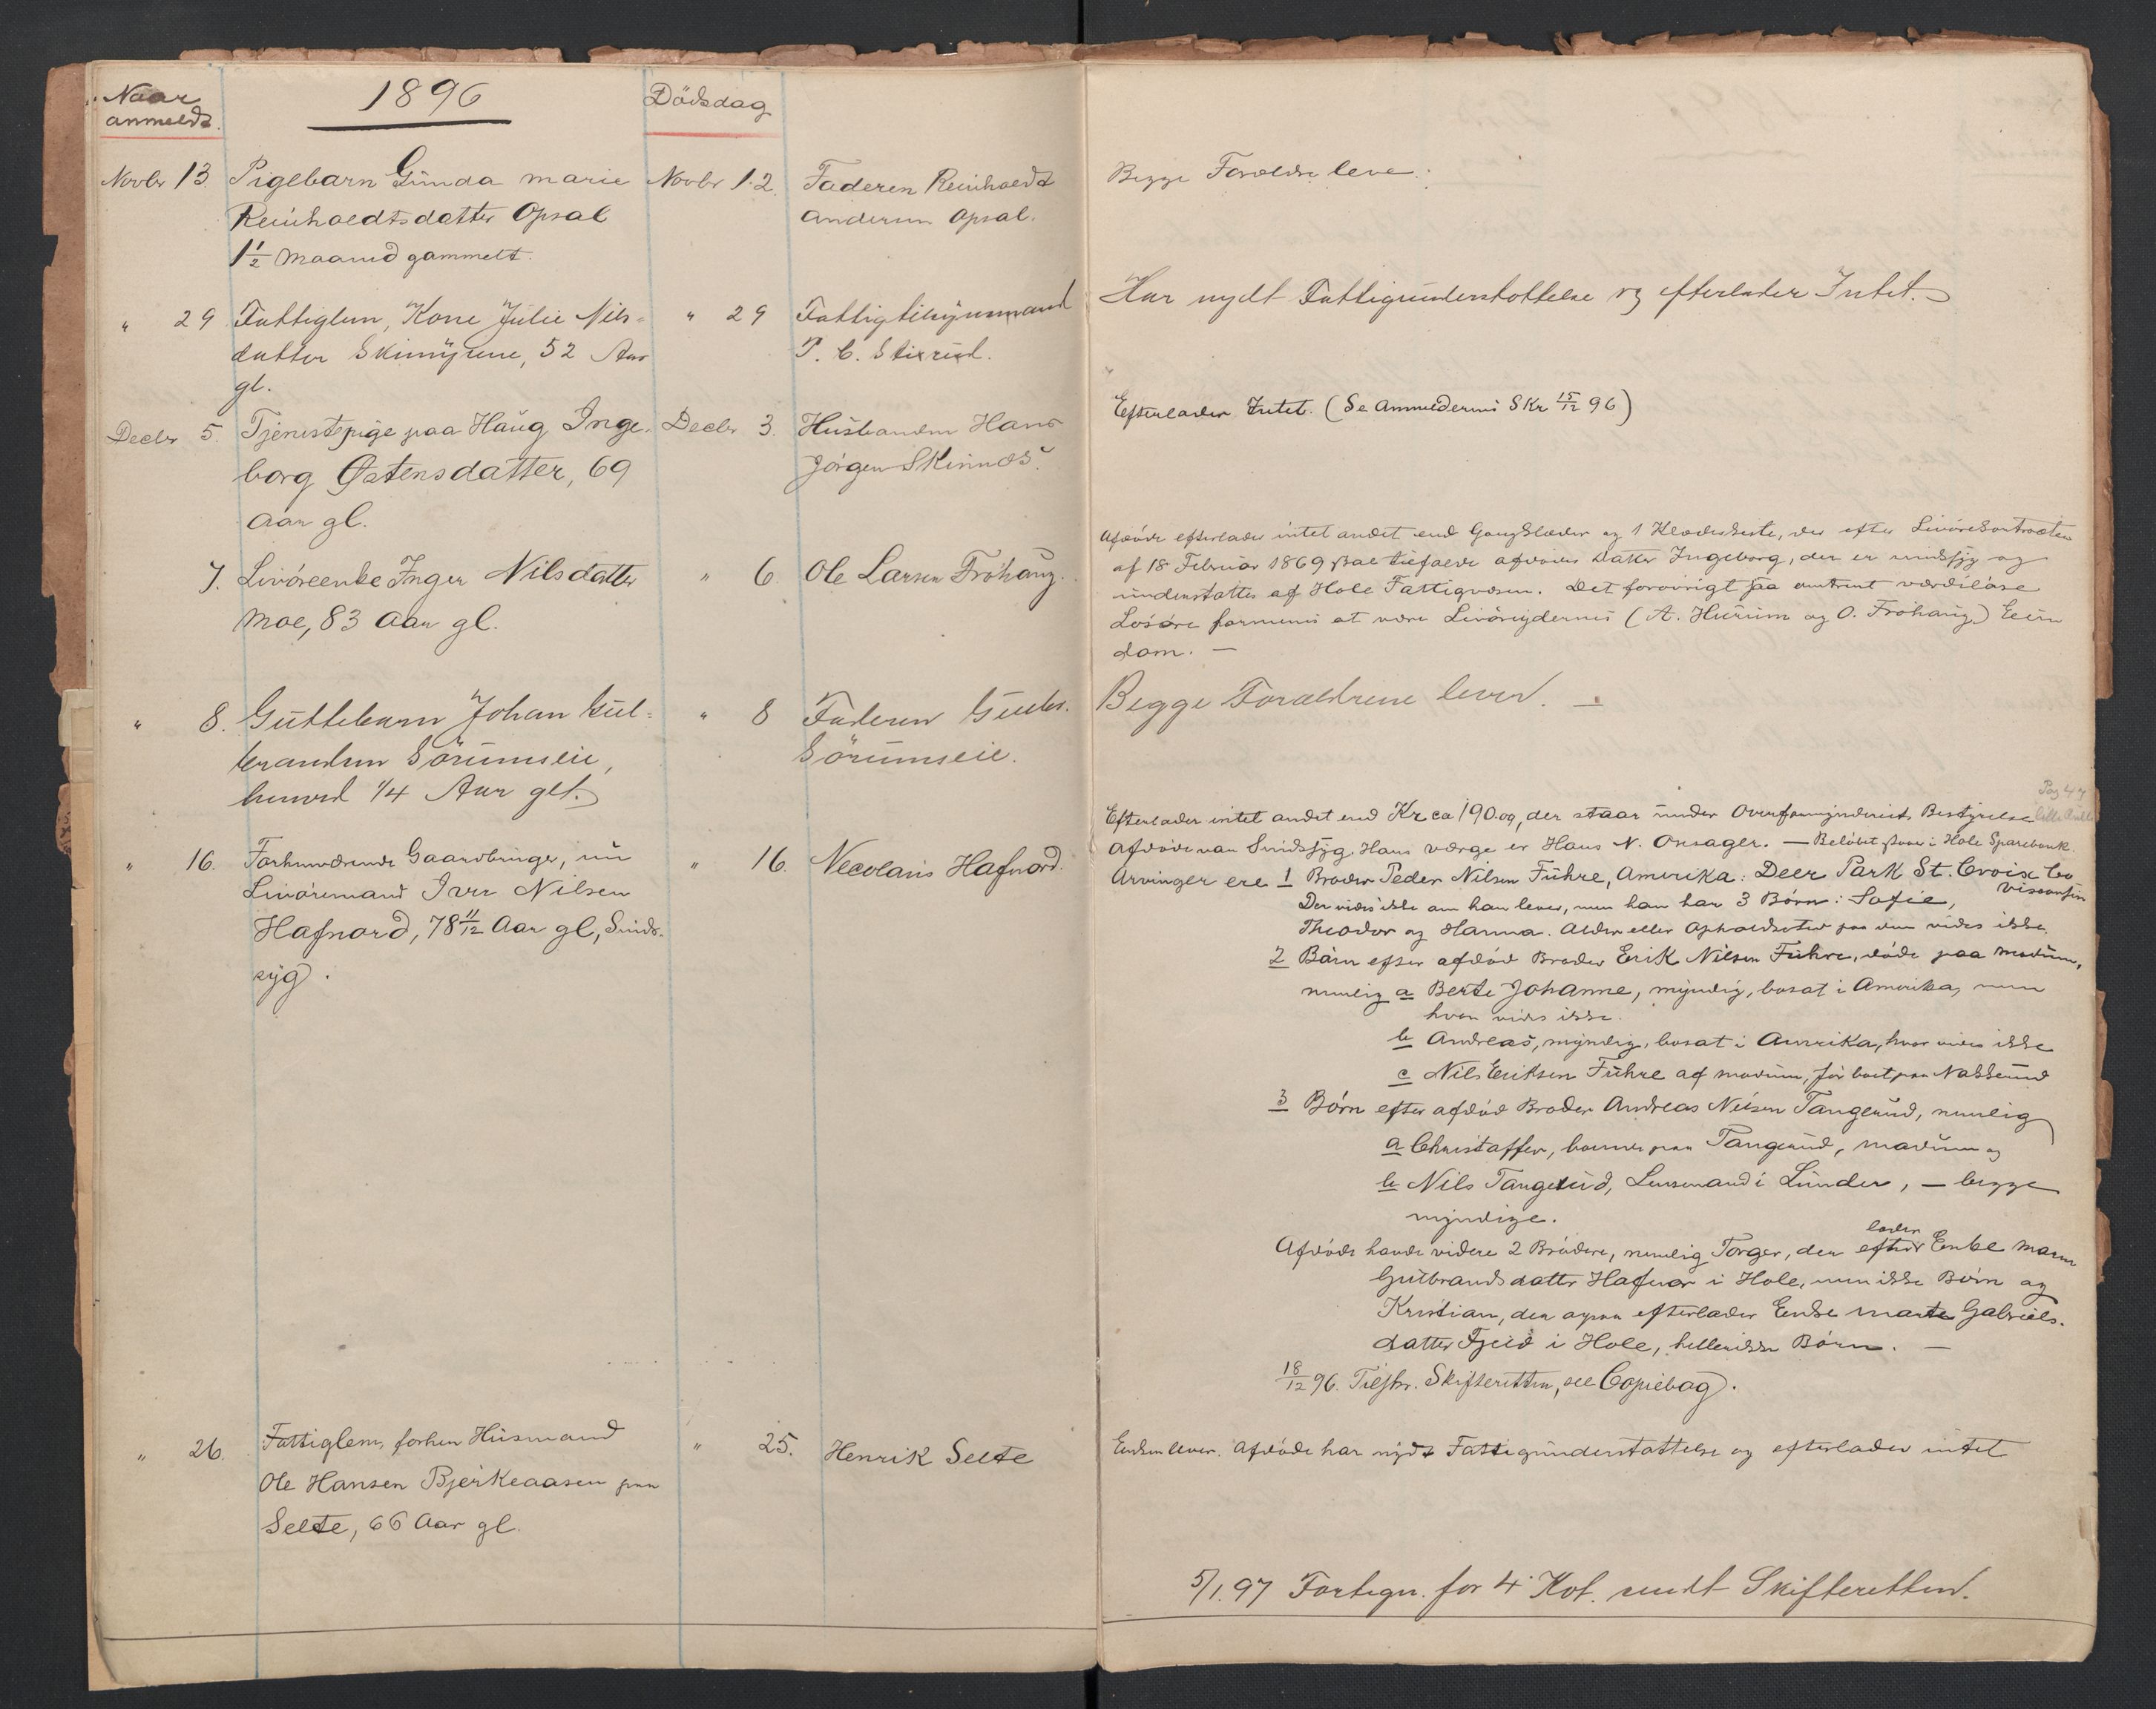 Naar
anmeldt.
1896
Dödsdag
Novbr 13. Pigebarn Gunda Marie
Reinholdtsdatter Opsal
1 1/2 Maaned gammelt.
Novbr 12. Faderen Reinholdt
Andersen Opsal.
Begge Forældre leve.
" 29 Fattiglem, Kone Julie Nils-
datter Skimyrene, 52 Aar
gl.
" 29 Fattigtilsynsmand
P. C. Stixrud.
Har nydt Fattigunderstøttelse og efterlader Intet.
Decbr 5. Tjenestepige paa Haug Inge-
borg Østensdatter, 69
Aar gl.
Decbr 3. Husbanden Hans
Jörgen Skinnes.
Efterlader Intet. (Se Anmelderens Skr 15/12 96)
7. Livöreenke Inger Nilsdatter
Moe, 83 Aar gl.
" 6. Ole Larsen Fröhaug.
Afdöde efterlader intet andet end Gangklæder og 1 Klædeskiste, der efter Livörekontrakten
af 18 Februar 1869 skal tilfalde afdödes Datter Ingeborg, der er sindssyg og
understöttes af Hole Fattigvæsen. Det forövrigt paa omtrent værdilöse
Lösöre formenes at være Livöreydernes (A. Hurum og O. Fröhaug) Eien
dom. —
" 8. Guttebarn Johan Gul-
brandsen Sörumseie,
henved 1/4 Aar glt.
" 8 Faderen Gulbr.
Sörumseie.
Begge Forældrene lever. —
Pag 47
" 16. Forhenværende Gaardbruger, nu
Livöremand Iver Nilsen
Hafnord, 78 11/12 Aar gl, Sinds-
syg.
" 16. Necolaus Hafnord.
Efterlader intet andet end Kr ca 190.00, der staar under Overformynderiets Bestyrelse
Afdöde var Sindssyg. Hans Værge er Hans N. Onsager. — Belöbet staar i Hole Sparebank.
Arvinger ere 1 Broder Peder Nilsen Fuhre, Amerika: Deer Park St. Croix Co
Visconsin
Der vides ikke om han lever, men han har 3 Börn: Sofie,
Theodor og Hanna. Alder eller Opholdssted paa dem vides ikke.
2 Börn efter afdöd Broder Erik Nilsen Fuhre, döde paa Modum,
nemlig a Berte Johanne, myndig, bosat i Amerika, men
hvor vides ikke.
b Andreas, myndig, bosat i Amerika, hvor vides ikke
c Nils Eriksen Fuhre af Modum, för boet paa Nakkerud
3 Börn efter afdöd Broder Andreas Nilsen Tangerud, nemlig
a Christoffer, boende paa Tangerud, Modum og
b Nils Tangerud, Lensmand i Lunder, — begge
myndige.
Afdöde havde videre 2 Brödre, nemlig Torger, der efter
lader
Enke Maren
Gulbrandsdatter Hafnor i Hole, men ikke Börn og
Kristian, der ogsaa efterlader Enke Marte Gabriels-
datter Fjeld i Hole, heller ikke Börn. —
18/12 96. Tilskr. Skifteretten, see Copiebog.
" 26. Fattiglem, forhen Husmand
Ole Hansen Bjerkeaasen paa
Selte, 66 Aar gl.
" 25. Henrik Selte
Enken lever. Afdöde har nydt Fattigunderstöttelse og efterlader intet
5/1.97 Fortegn. for 4' Kvt. sendt Skifteretten.